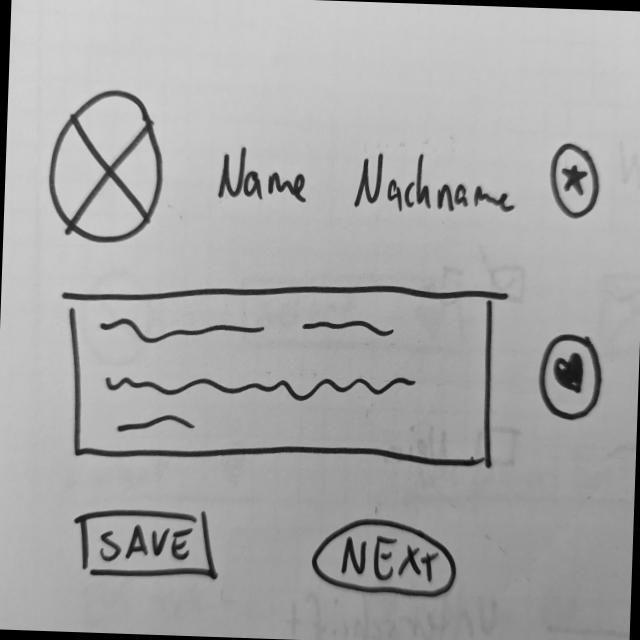 Name Nachname
SAVE
NEXT